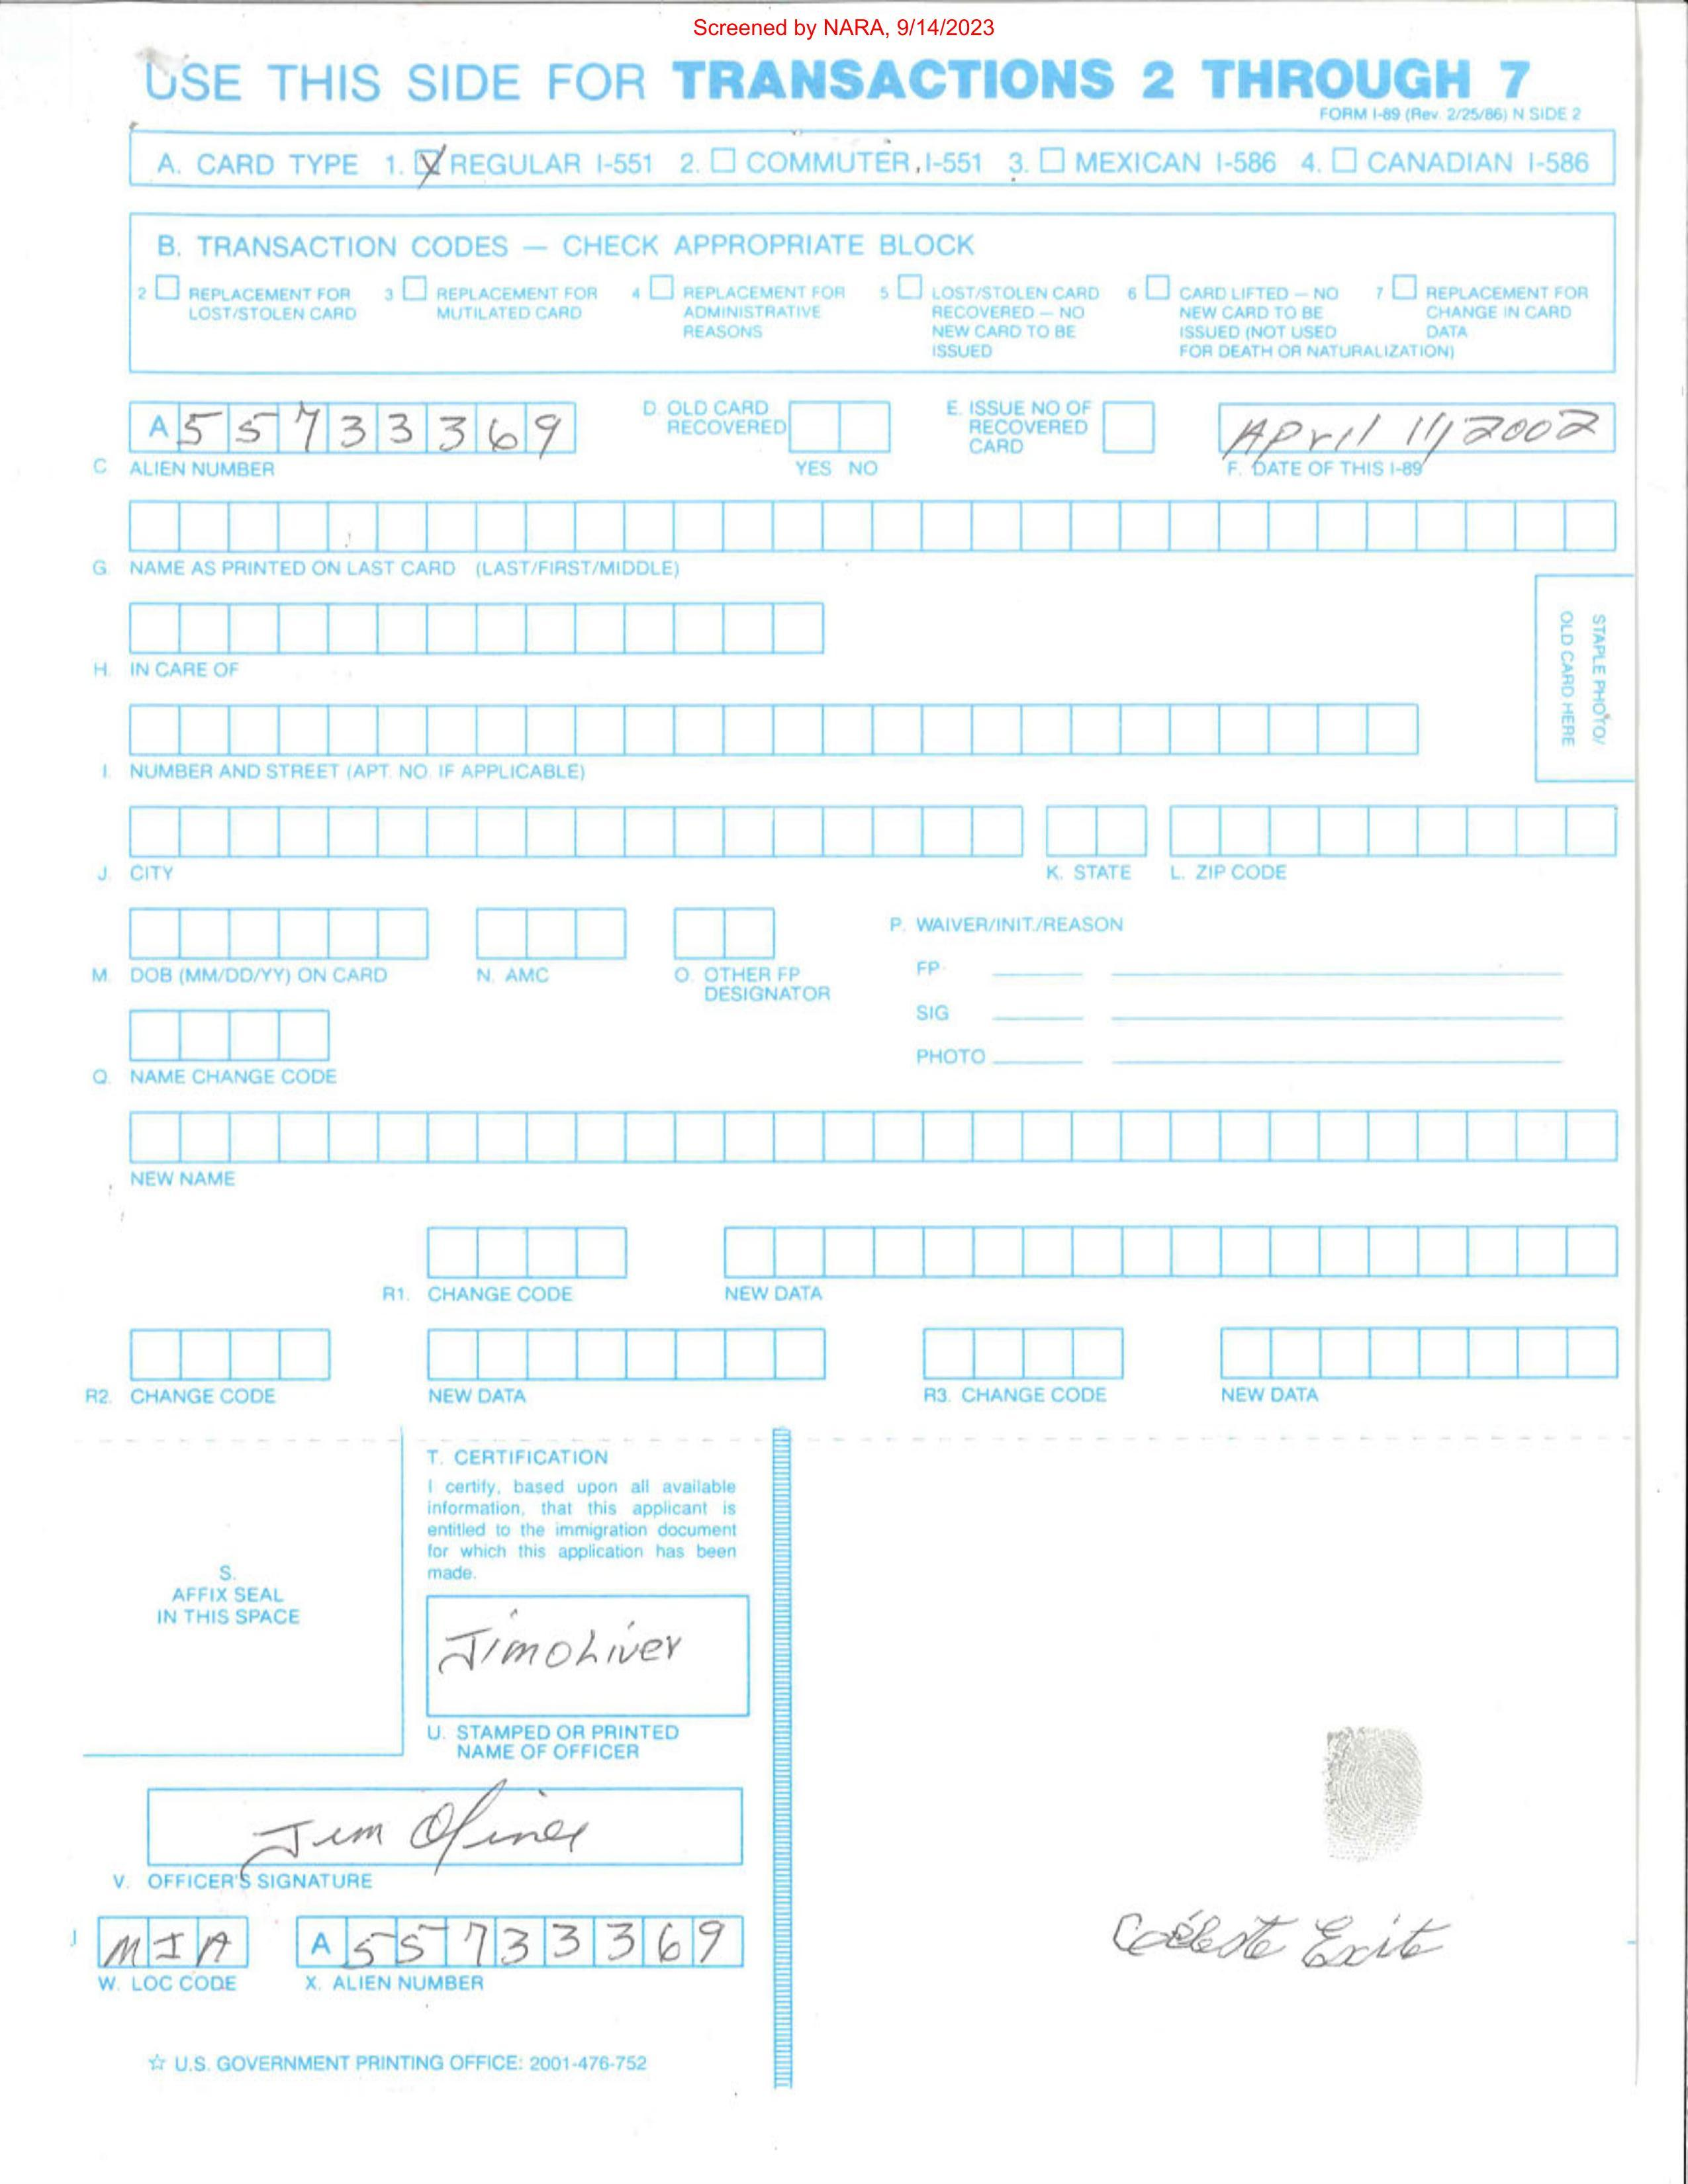 Screened by NARA, 9/14/2023
USE THIS SIDE FOR TRANSACTIONS 2 THROUGH 7
FORM I-89 (Rev. 2/25/86) N SIDE 2
A. CARD TYPE 1. ☒ REGULAR I-551 2. ☐ COMMUTER, I-551 3. ☐ MEXICAN I-586 4. ☐ CANADIAN I-586
B. TRANSACTION CODES — CHECK APPROPRIATE BLOCK
2 ☐ REPLACEMENT FOR LOST/STOLEN CARD
3 ☐ REPLACEMENT FOR MUTILATED CARD
4 ☐ REPLACEMENT FOR ADMINISTRATIVE REASONS
5 ☐ LOST/STOLEN CARD RECOVERED — NO NEW CARD TO BE ISSUED
6 ☐ CARD LIFTED — NO NEW CARD TO BE ISSUED (NOT USED FOR DEATH OR NATURALIZATION)
7 ☐ REPLACEMENT FOR CHANGE IN CARD DATA
A 55733369
C. ALIEN NUMBER
D. OLD CARD RECOVERED
YES NO
E. ISSUE NO OF RECOVERED CARD
April 11, 2002
F. DATE OF THIS I-89
G. NAME AS PRINTED ON LAST CARD (LAST/FIRST/MIDDLE)
STAPLE PHOTO/
OLD CARD HERE
H. IN CARE OF
I. NUMBER AND STREET (APT. NO. IF APPLICABLE)
J. CITY
K. STATE
L. ZIP CODE
M. DOB (MM/DD/YY) ON CARD
N. AMC
O. OTHER FP DESIGNATOR
P. WAIVER/INIT./REASON
FP
SIG
PHOTO
Q. NAME CHANGE CODE
NEW NAME
R1. CHANGE CODE
NEW DATA
R2. CHANGE CODE
NEW DATA
R3. CHANGE CODE
NEW DATA
S.
AFFIX SEAL
IN THIS SPACE
T. CERTIFICATION
I certify, based upon all available
information, that this applicant is
entitled to the immigration document
for which this application has been
made.
Jim oliver
U. STAMPED OR PRINTED
NAME OF OFFICER
Jim Oliver
V. OFFICER'S SIGNATURE
MIA
W. LOC CODE
A 55733369
X. ALIEN NUMBER
☆ U.S. GOVERNMENT PRINTING OFFICE: 2001-476-752